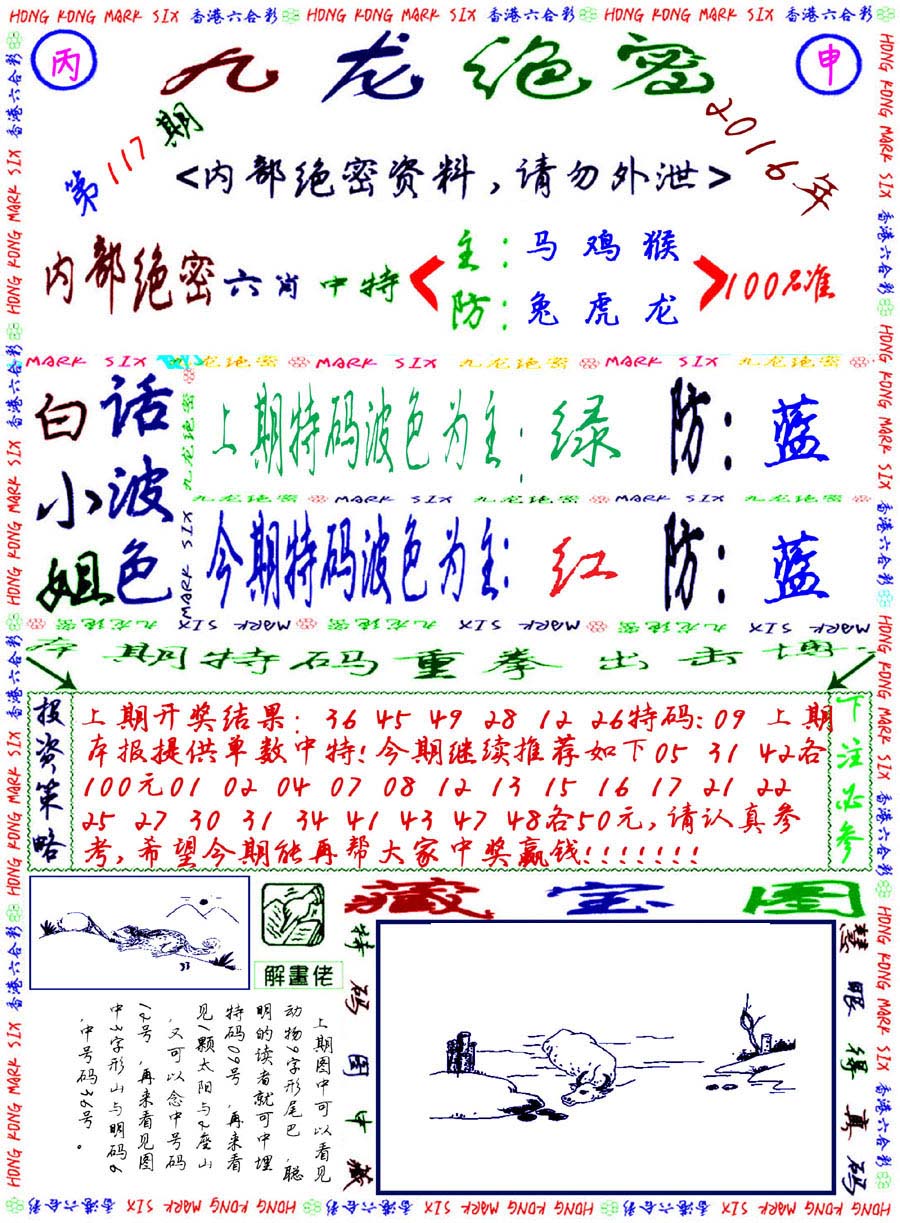 HONG KONG MARK SIX 香港六合彩 HONG KONG MARK SIX 香港六合彩 HONG KONG MARK SIX 香港六合彩
丙
九龙绝密
申
第117期
2016年
<内部绝密资料,请勿外泄>
内部绝密六肖中特
主:马鸡猴
防:兔虎龙
100%准
MARK SIX 九龙绝密 MARK SIX 九龙绝密 MARK SIX 九龙绝密
白小姐
话波色
上期特码波色为主:绿 防:蓝
九龙绝密 MARK SIX 九龙绝密 MARK SIX 九龙绝密
今期特码波色为主:红 防:蓝
九龙绝密 MARK SIX 九龙绝密 MARK SIX 九龙绝密 MARK SIX
本期特码重拳出击博
投资策略
上期开奖结果: 36 45 49 28 12 26特码:09 上期
本报提供单数中特!今期继续推荐如下05 31 42各
100元01 02 04 07 08 12 13 15 16 17 21 22
25 27 30 31 34 41 43 47 48各50元,请认真参
考,希望今期能再帮大家中奖赢钱!!!!!!!
下注必参
藏宝图
解畫佬
上期图中可以看见
动物9字形尾巴,聪
明的读者就可中埋
特码09号,再来看
见1颗太阳与2座山
,又可以念中号码
12号,再来看见图
中3字形山与明码6
,中号码36号。
特码图中藏
慧眼得真码
HONG KONG MARK SIX 香港六合彩 HONG KONG MARK SIX 香港六合彩 HONG KONG MARK SIX 香港六合彩